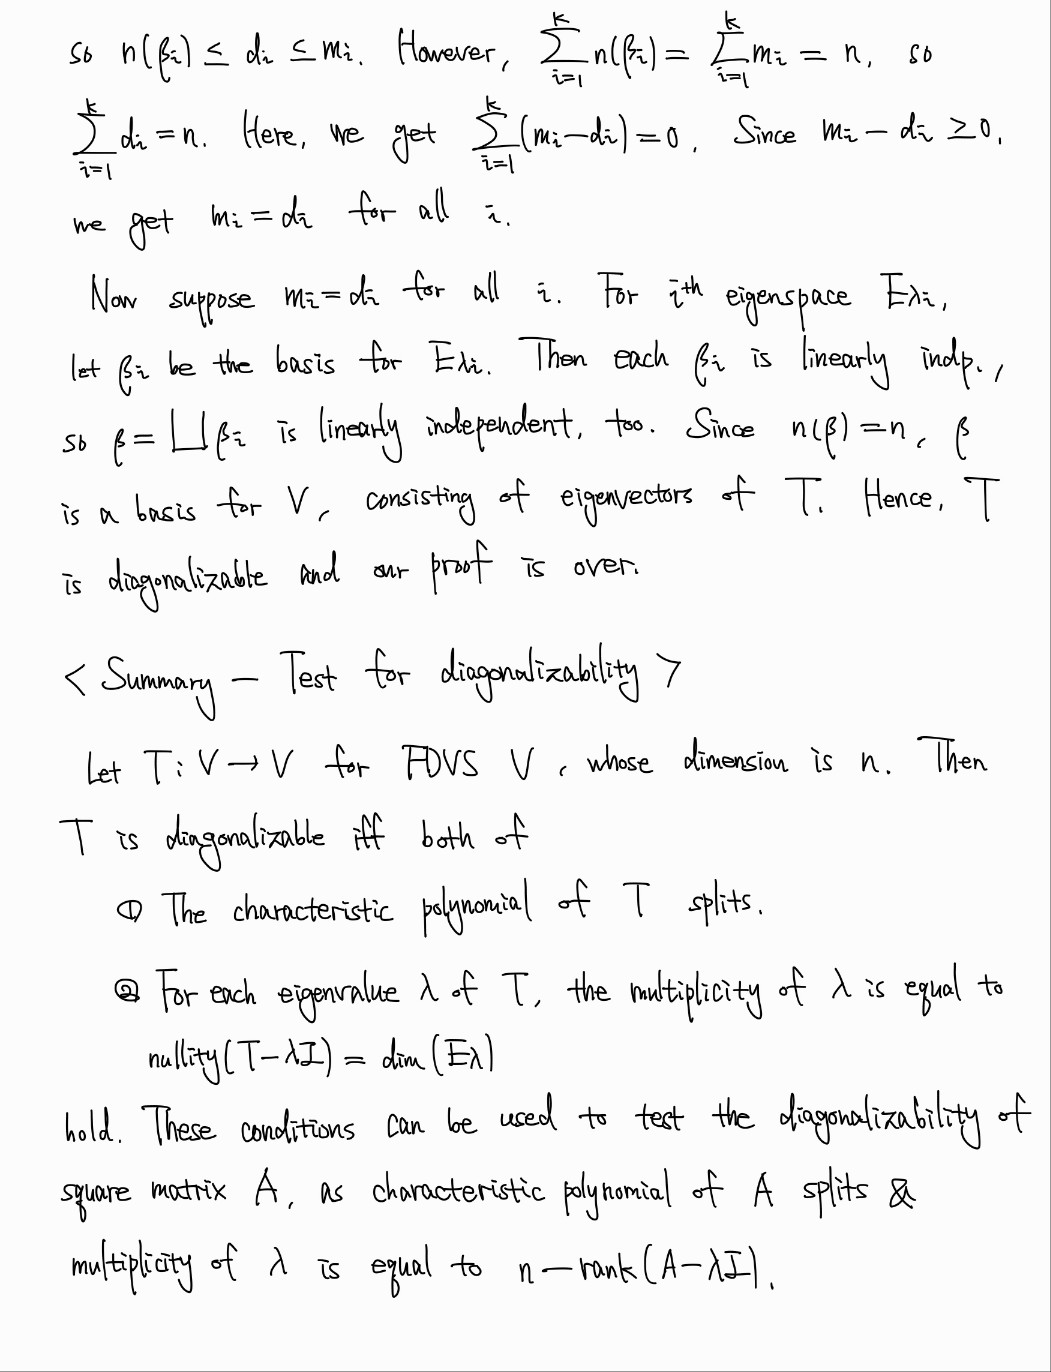 so n(βi) ≤ di ≤ mi. However, ∑_{i=1}^{k} n(βi) = ∑_{i=1}^{k} mi = n, so
∑_{i=1}^{k} di = n. Here, we get ∑_{i=1}^{k} (mi−di) = 0. Since mi − di ≥ 0,
we get mi = di for all i.
Now suppose mi = di for all i. For ith eigenspace Eλi,
let βi be the basis for Eλi. Then each βi is linearly indp.,
so β = ⨆ βi is linearly independent, too. Since n(β) = n, β
is a basis for V, consisting of eigenvectors of T. Hence, T
is diagonalizable and our proof is over.
< Summary – Test for diagonalizability >
Let T : V → V for FDVS V, whose dimension is n. Then
T is diagonalizable iff both of
① The characteristic polynomial of T splits.
② For each eigenvalue λ of T, the multiplicity of λ is equal to
nullity(T−λI) = dim(Eλ)
hold. These conditions can be used to test the diagonalizability of
square matrix A, as characteristic polynomial of A splits &
multiplicity of λ is equal to n − rank(A−λI).